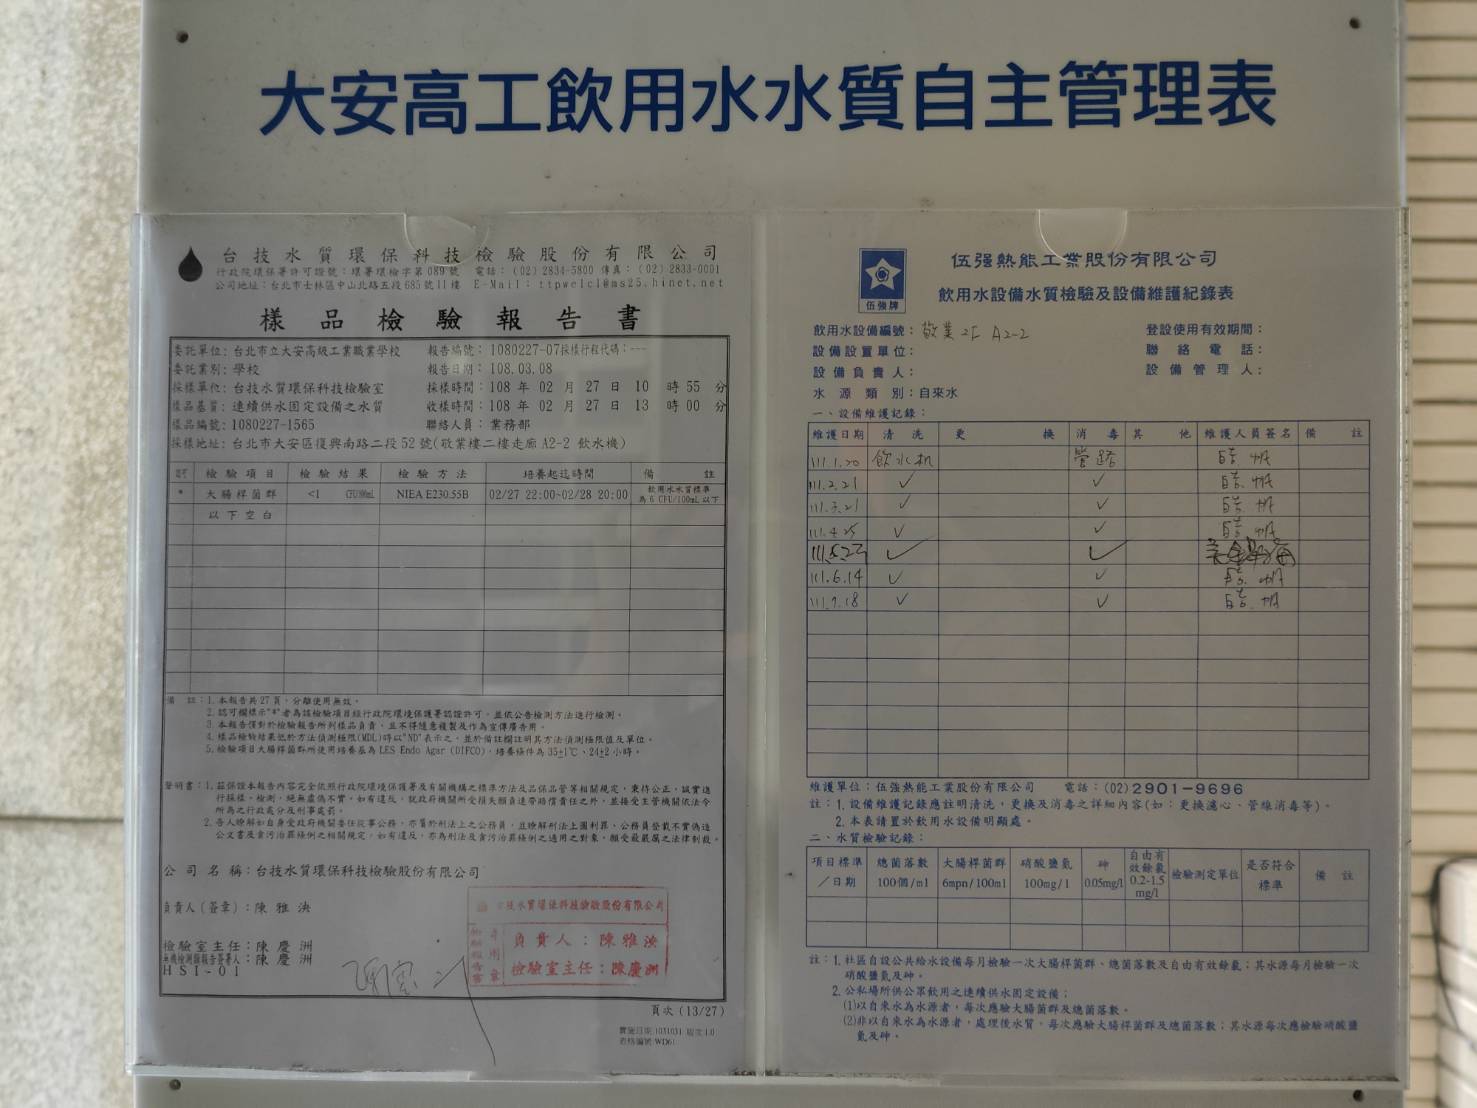 大安高工飲用水水質自主管理表
台技水質環保科技檢驗股份有限公司
行政院環保署許可證號：環署環檢字第089號 電話：(02) 2834-5800 傳真：(02) 2833-0001
公司地址：台北市士林區中山北路五段685號11樓 E-Mail：ttpwelcl@ms25.hinet.net
樣品檢驗報告書
委託單位：台北市立大安高級工業職業學校 報告編號：1080227-07採樣行程代碼：---
委託業別：學校 報告日期：108.03.08
採樣單位：台技水質環保科技檢驗室 採樣時間：108 年 02 月 27 日 10 時 55 分
樣品基質：連續供水固定設備之水質 收樣時間：108 年 02 月 27 日 13 時 00 分
樣品編號：1080227-1565 聯絡人員：業務部
採樣地址：台北市大安區復興南路二段 52 號(敬業樓二樓走廊 A2-2 飲水機)
認可 檢驗項目 檢驗結果 檢驗方法 培養起迄時間 備註
* 大腸桿菌群 <1 CFU/100mL NIEA E230.55B 02/27 22:00~02/28 20:00 飲用水水質標準為 6 CFU/100mL 以下
以下空白
備 註：1. 本報告共27頁，分離使用無效。
2. 認可欄標示"*"者為該檢驗項目經行政院環境保護署認證許可，並依公告檢測方法進行檢測。
3. 本報告僅對於檢驗報告所列樣品負責，且不得隨意複製及作為宣傳廣告用。
4. 樣品檢驗結果低於方法偵測極限(MDL)時以"ND"表示之，並於備註欄註明其方法偵測極限值及單位。
5. 檢驗項目大腸桿菌群所使用培養基為 LES Endo Agar (DIFCO)，培養條件為 35±1℃、24±2 小時。
聲明書：1. 茲保證本報告內容完全依照行政院環境保護署及有關機構之標準方法及品保品管等相關規定，秉持公正、誠實進
行採樣、檢測，絕無虛偽不實，如有違反，就政府機關所受損失願負連帶賠償責任之外，並接受主管機關依法令
所為之行政處分及刑事處罰。
2. 吾人瞭解如自身受政府機關委任從事公務，亦屬於刑法上之公務員，且瞭解刑法上圖利罪、公務員登載不實偽造
公文書及貪污治罪條例之相關規定，如有違反，亦為刑法及貪污治罪條例之適用之對象，願受最嚴厲之法律制裁。
公 司 名 稱：台技水質環保科技檢驗股份有限公司
負責人(簽章)：陳 雅 泱
檢驗室主任：陳 慶 洲
無機檢測類報告簽署人：陳 慶 洲
HSI-01
台技水質環保科技檢驗股份有限公司
檢驗報告書 專用章
負責人：陳雅泱
檢驗室主任：陳慶洲
頁次 (13/27)
實施日期 1031031 版次 1.0
表格編號 WD61
伍強牌
伍强熱能工業股份有限公司
飲用水設備水質檢驗及設備維護紀錄表
飲用水設備編號：敬業 2F A2-2 登設使用有效期間：
設備設置單位： 聯絡電話：
設備負責人： 設備管理人：
水源類別：自來水
一、設備維護記錄：
維護日期 清洗 更換 消毒 其他 維護人員簽名 備註
111.1.20 飲水机 管路
111.2.21 ✓ ✓
111.3.21 ✓ ✓
111.4.25 ✓ ✓
111.5.23 ✓ ✓
111.6.14 ✓ ✓
111.7.18 ✓ ✓
維護單位：伍強熱能工業股份有限公司 電話：(02)2901-9696
註：1. 設備維護記錄應註明清洗，更換及消毒之詳細內容(如：更換濾心、管線消毒等)。
2. 本表請置於飲用水設備明顯處。
二、水質檢驗記錄：
項目標準/日期 總菌落數 100個/ml 大腸桿菌群 6mpn/100ml 硝酸鹽氮 100mg/l 砷 0.05mg/l 自由有效餘氯 0.2-1.5 mg/l 檢驗測定單位 是否符合標準 備註
註：1. 社區自設公共給水設備每月檢驗一次大腸桿菌群、總菌落數及自由有效餘氯；其水源每月檢驗一次
硝酸鹽氮及砷。
2. 公私場所供公眾飲用之連續供水固定設備；
(1)以自來水為水源者，每次應驗大腸桿菌群及總菌落數。
(2)非以自來水為水源者，處理後水質，每次應驗大腸桿菌群及總菌落數；其水源每次應檢驗硝酸鹽
氮及砷。